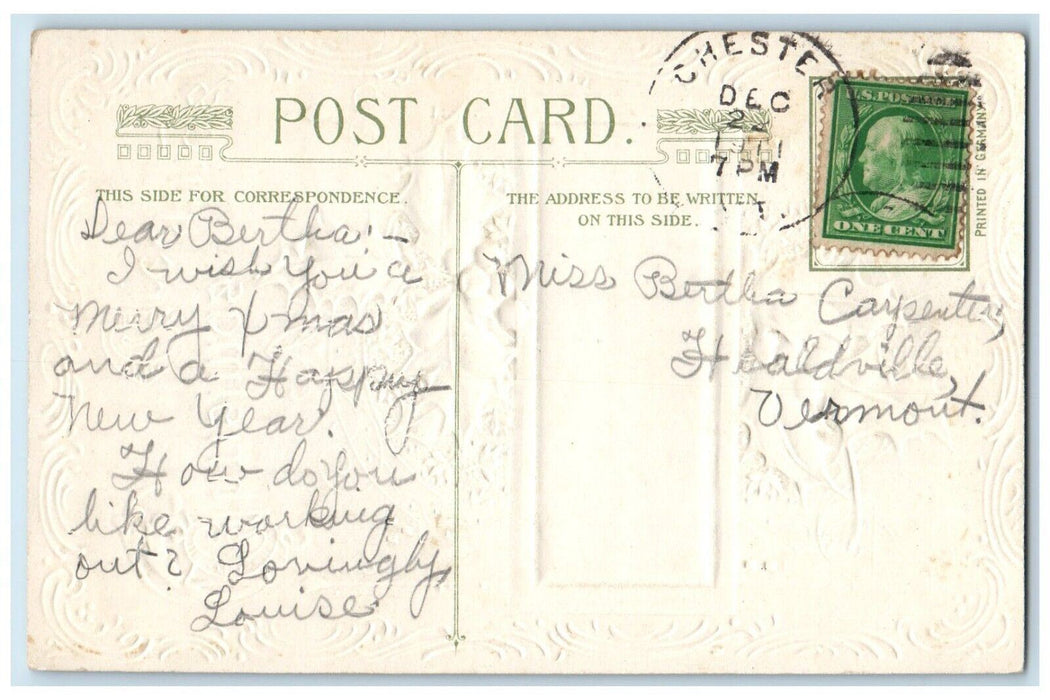 POST CARD.
THIS SIDE FOR CORRESPONDENCE.
THE ADDRESS TO BE WRITTEN
ON THIS SIDE.
CHESTER
DEC
1911
7 PM
U.S. POSTAGE
ONE CENT
PRINTED IN GERMANY
Dear Bertha:—
I wish you a
Merry X-mas
and a Happy
New Year.
How do you
like working
out? Lovingly,
Louise.
Miss Bertha Carpenter,
Healdville,
Vermont.